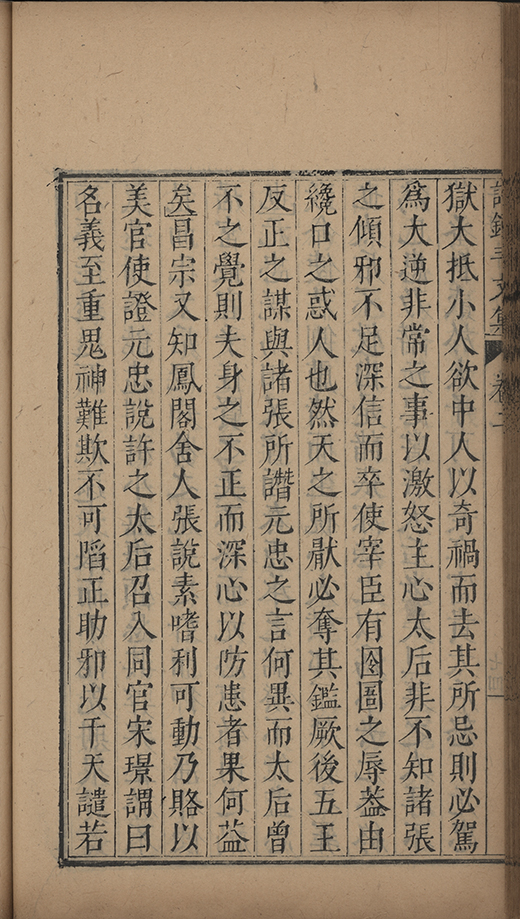 許鍾斗文集 卷二
獄大抵小人欲中人以奇禍而去其所忌則必駕
爲大逆非常之事以激怒主心太后非不知諸張
之傾邪不足深信而卒使宰臣有囹圄之辱葢由
纔口之惑人也然天之所猒必奪其鑑厥後五王
反正之謀與諸張所譖元忠之言何異而太后曾
不之覺則夫身之不正而深心以防患者果何益
矣昌宗又知鳳閣舍人張說素嗜利可動乃賂以
美官使證元忠說許之太后召入同官宋璟謂曰
名義至重鬼神難欺不可陷正助邪以干天譴若